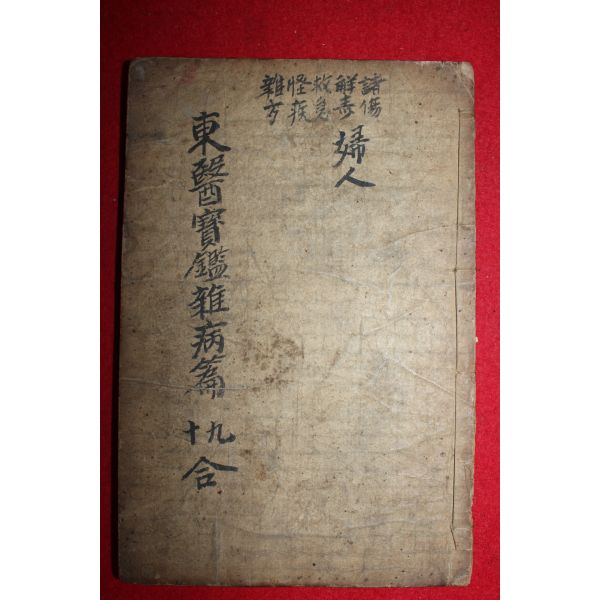 諸傷
解毒
救急
怪疾
雜方
婦人
東醫寶鑑雜病篇 九
十
合